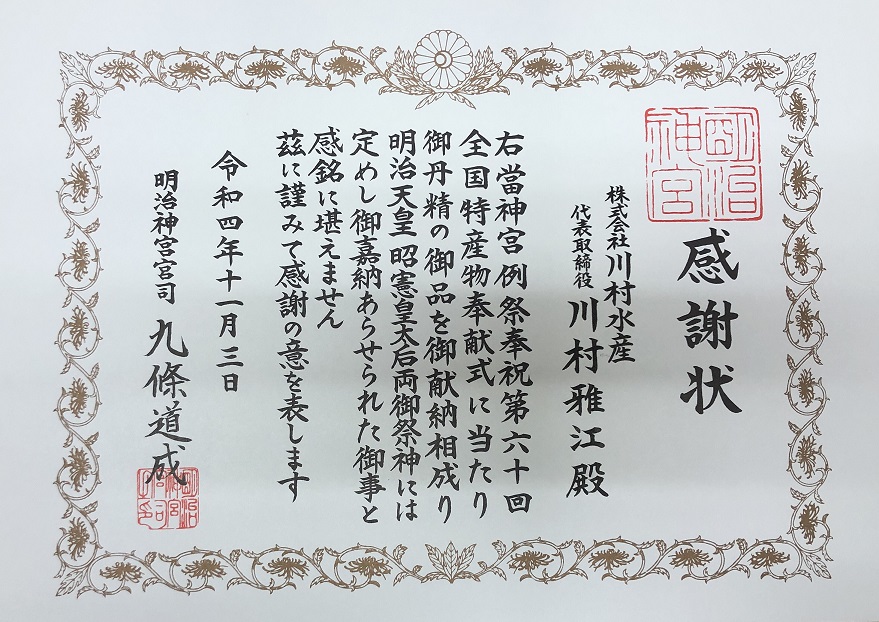 明治神宮
感謝状
株式会社川村水産
代表取締役 川村雅江殿
右當神宮例祭奉祝第六十回
全国特産物奉献式に当たり
御丹精の御品を御献納相成り
明治天皇 昭憲皇太后両御祭神には
定めし御嘉納あらせられた御事と
感銘に堪えません
茲に謹みて感謝の意を表します
令和四年十一月三日
明治神宮宮司 九條道成